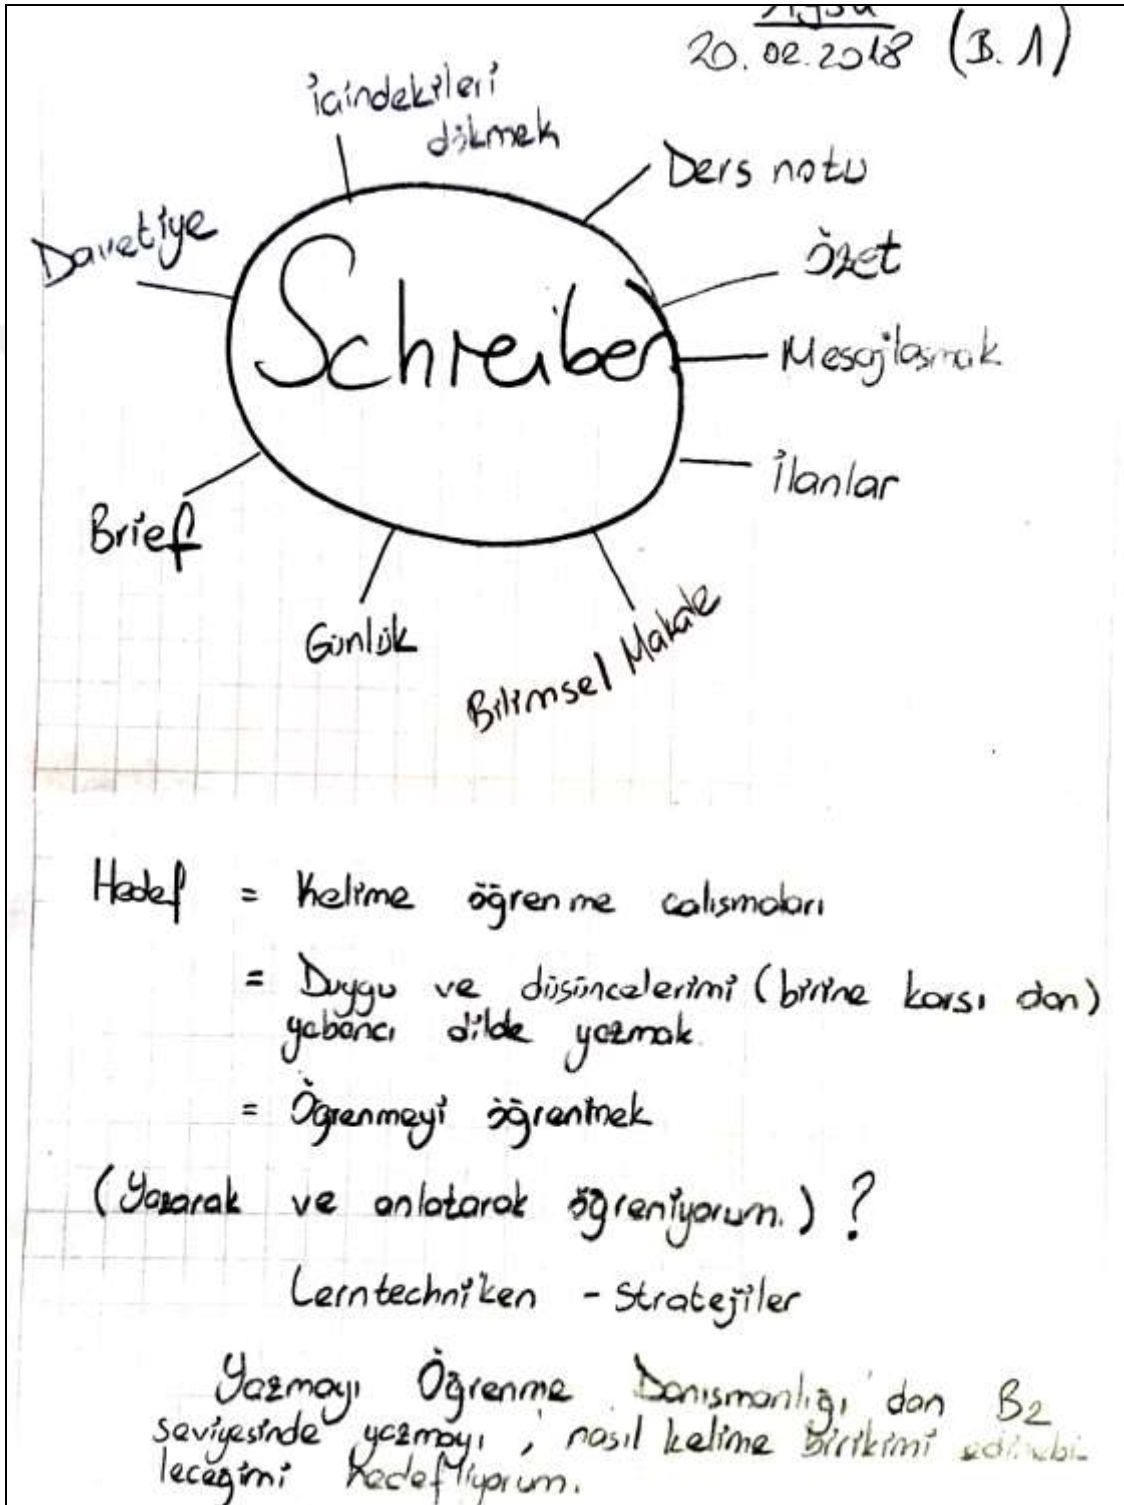 20.02.2018 (B.1)
içindekileri
dökmek
Ders notu
Davetiye
özet
Schreiben
Mesajlaşmak
ilanlar
Brief
Günlük
Bilimsel Makale
Hedef = Kelime öğrenme calısmaları
= Duygu ve düşüncelerimi (birine karsı dan)
yabancı dilde yazmak
= Öğrenmeyi öğrenmek
(Yazarak ve anlatarak öğreniyorum.) ?
Lerntechniken - Stratejiler
Yazmayı Öğrenme Danısmanlığı'dan B2
seviyesinde yazmayı, nasıl kelime birikimi edinebi-
leceğimi hedefliyorum.